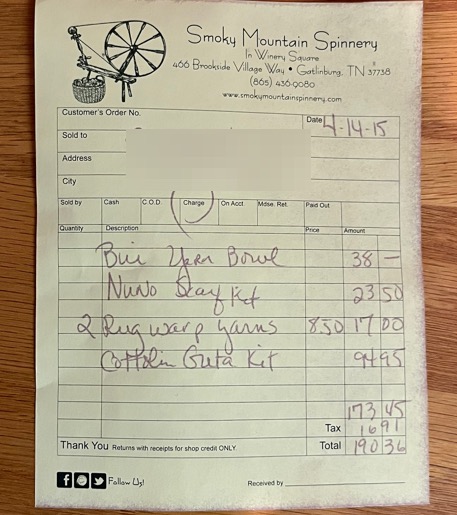 Smoky Mountain Spinnery
In Winery Square
466 Brookside Village Way • Gatlinburg, TN 37738
(865) 436-9080
www.smokymountainspinnery.com
Customer's Order No. Date 4-14-15
Sold to
Address
City
Sold by Cash C.O.D. Charge On Acct. Mdse. Ret. Paid Out
Quantity Description Price Amount
Yarn Bowl 38 —
Nuno Scarf Kit 23 50
2 Rug warp yarns 8 50 17 00
Cottolin Kit 94 95
173 45
Tax 16 91
Thank You Returns with receipts for shop credit ONLY. Total 190 36
Follow Us! Received by